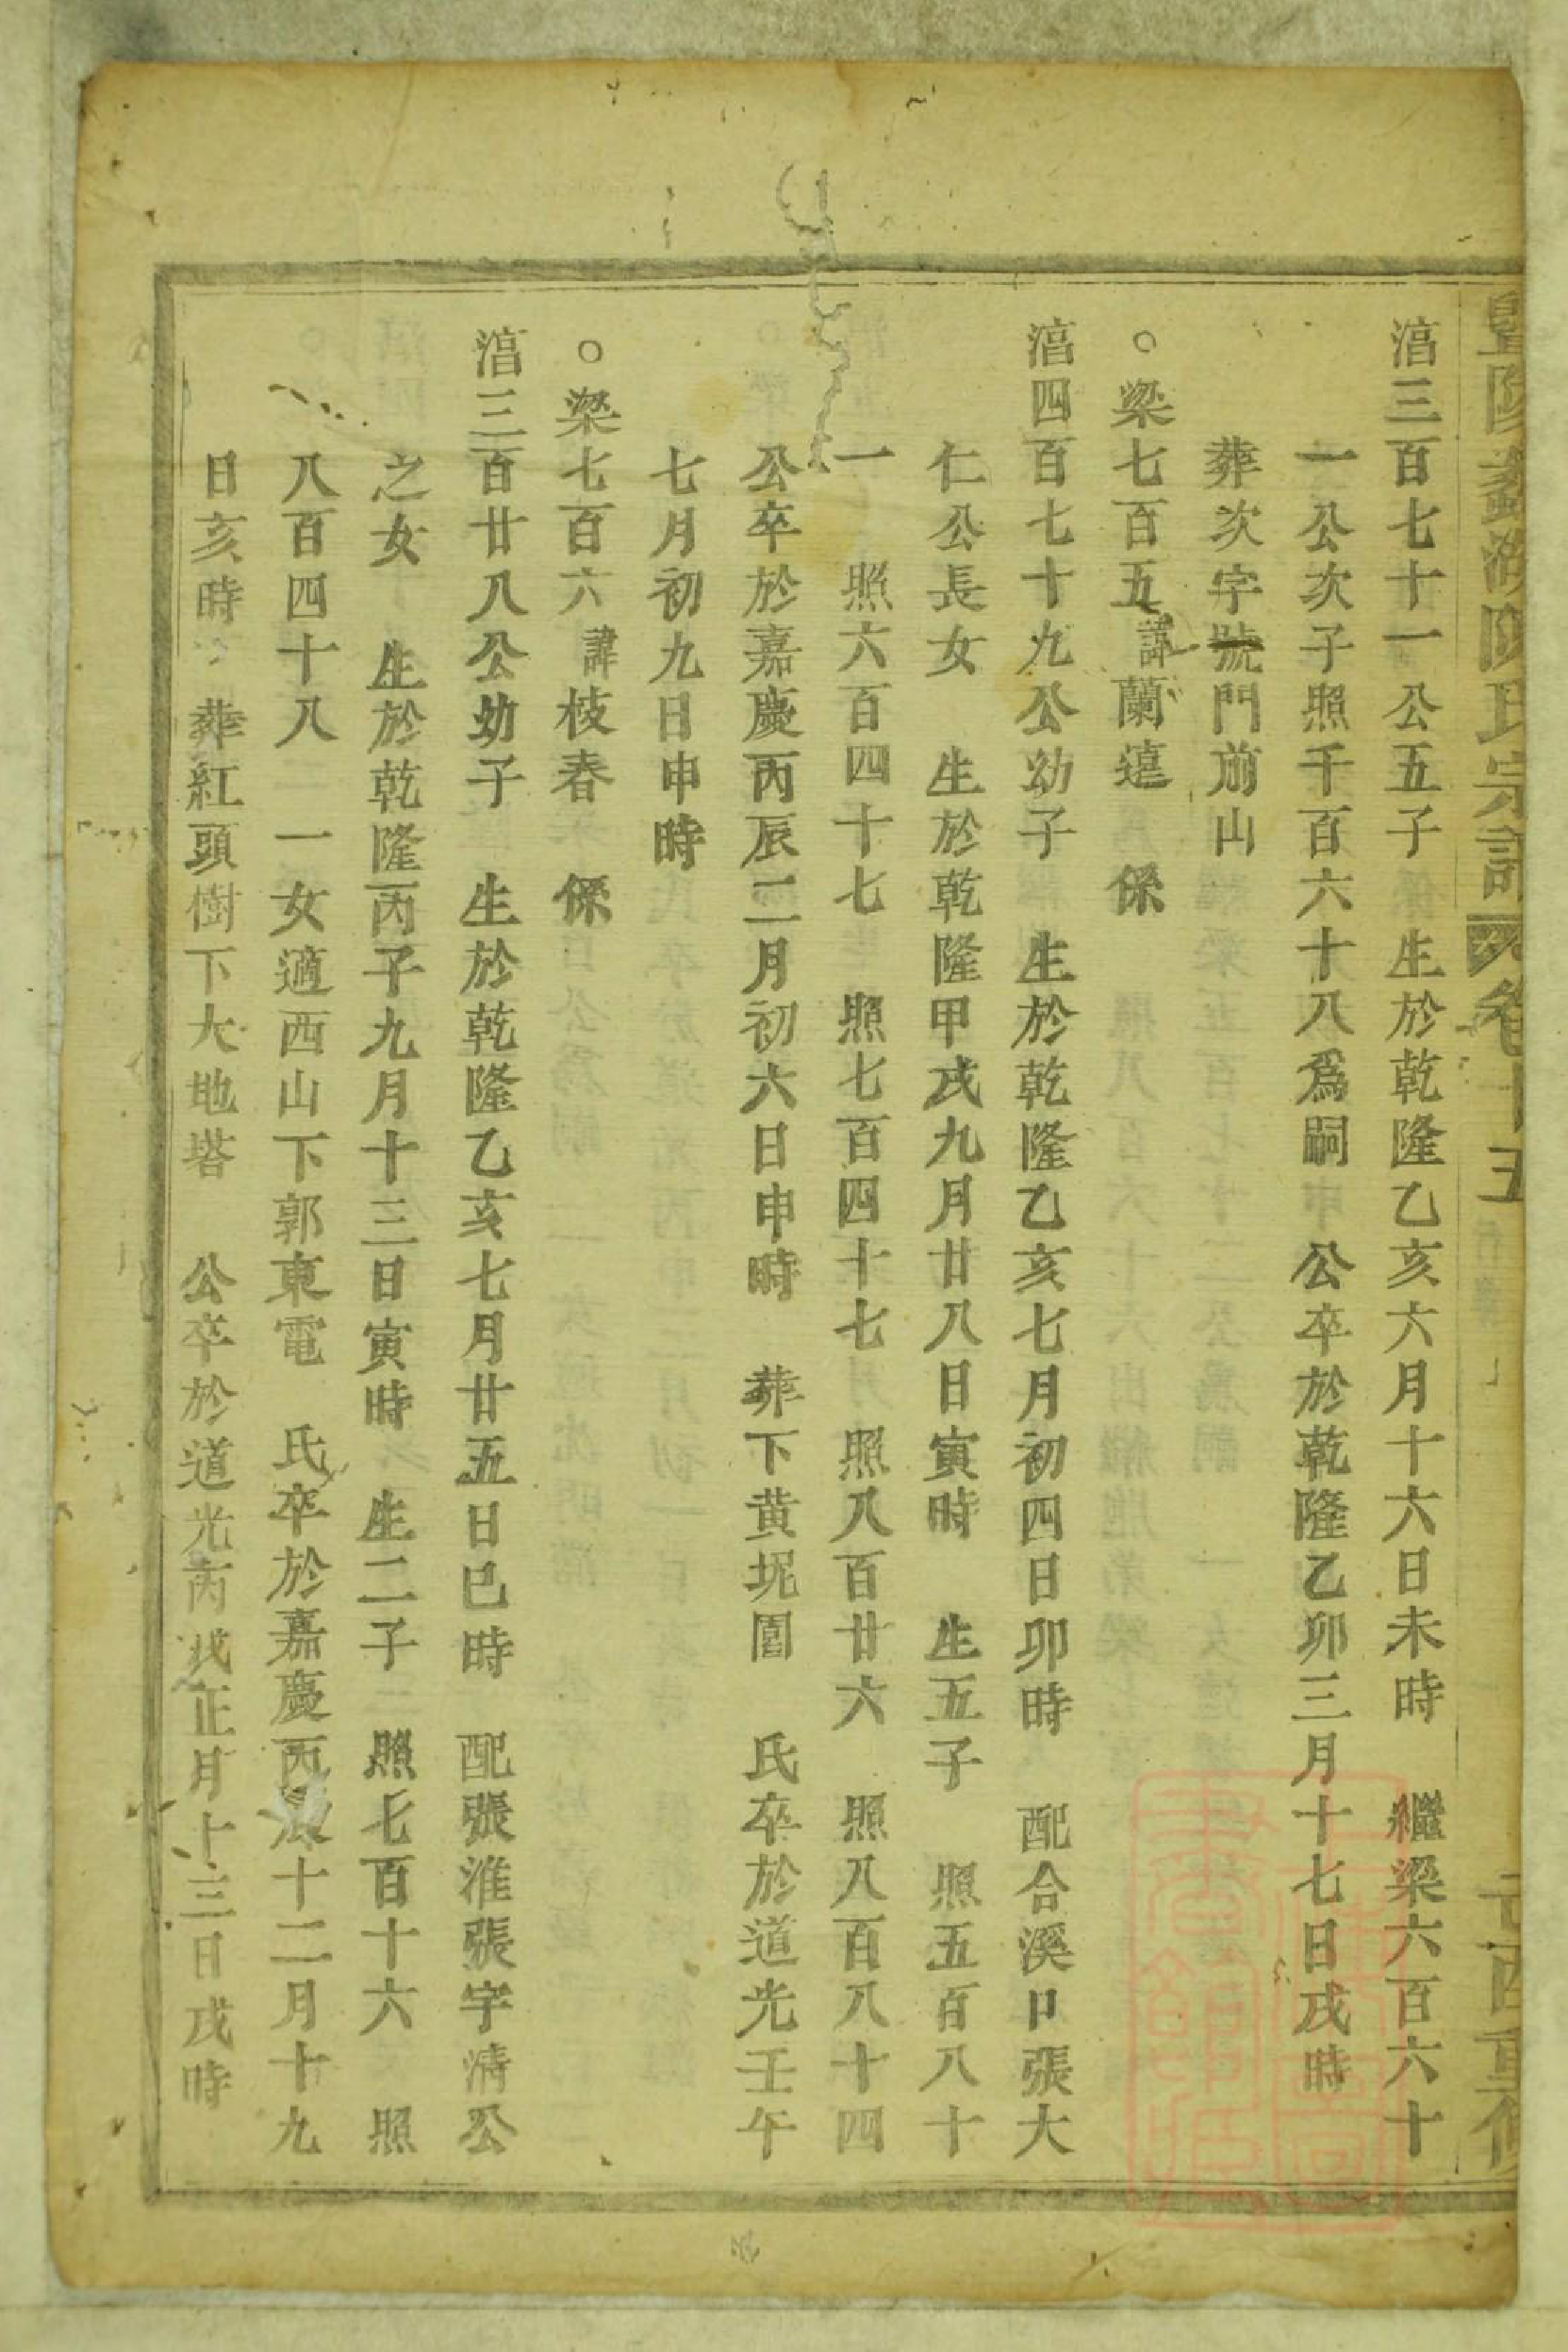 暨陽 湖陳氏宗譜 卷十五 重修
湻三百七十一公五子 生於乾隆乙亥六月十六日未時 繼梁六百六十
一公次子照千百六十八爲嗣 公卒於乾隆乙卯三月十七日戌時
葬次字號門前山
○梁七百五諱蘭 係
湻四百七十九公幼子 生於乾隆乙亥七月初四日卯時 配合溪口張大
仁公長女 生於乾隆甲戌九月廿八日寅時 生五子 照五百八十
一 照六百四十七 照七百四十七 照八百廿六 照八百八十四
公卒於嘉慶丙辰二月初六日申時 葬下黄坭圊 氏卒於道光壬午
七月初九日申時
○梁七百六諱枝春 係
湻三百廿八公幼子 生於乾隆乙亥七月廿五日巳時 配張淮張宇清公
之女 生於乾隆丙子九月十三日寅時 生二子 照七百十六 照
八百四十八 一女適西山下郭東電 氏卒於嘉慶丙辰十二月十九
日亥時 葬紅頭樹下大地塔 公卒於道光丙戌正月十三日戌時